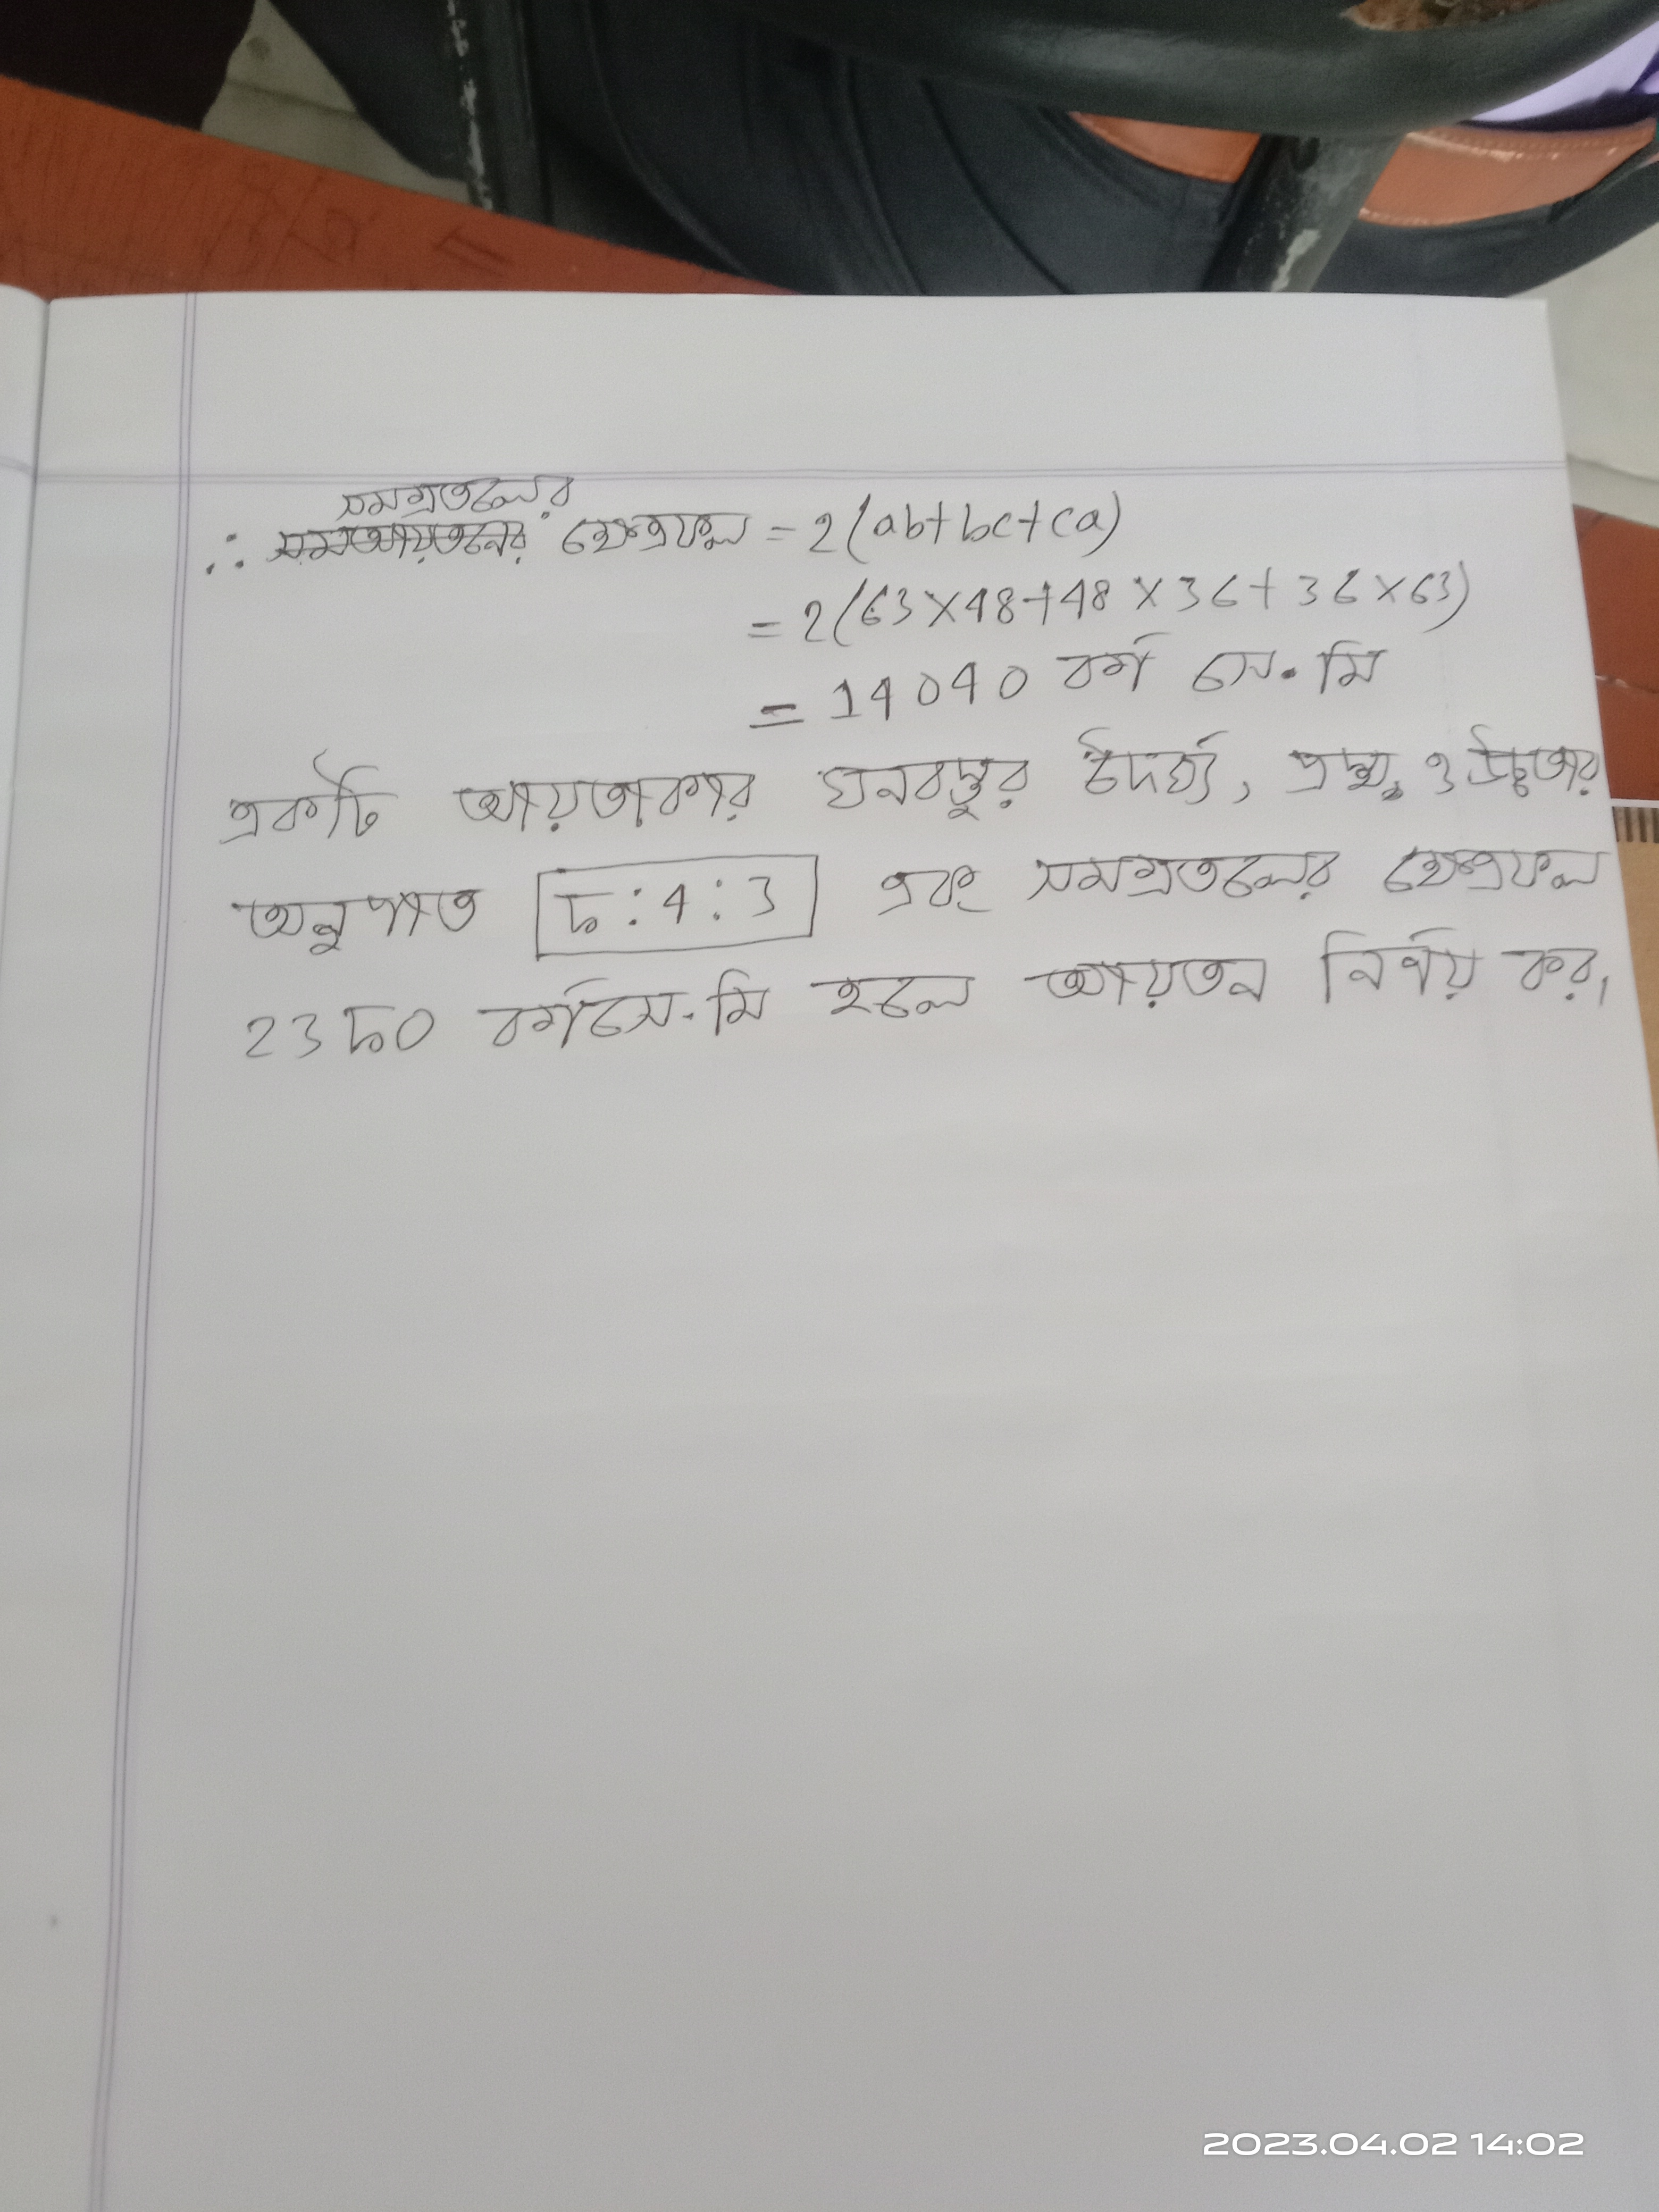 সমগ্রতলের
∴ ক্ষেত্রফল = 2(ab+bc+ca)
= 2(63×48+48×36+36×63)
= 14040 বর্গ সে.মি
একটি আয়তাকার ঘনবস্তুর দৈর্ঘ্য, প্রস্থ ও উচ্চতার
অনুপাত 5:4:3 এবং সমগ্রতলের ক্ষেত্রফল
2350 বর্গসে.মি হলে আয়তন নির্ণয় কর।
2023.04.02 14:02